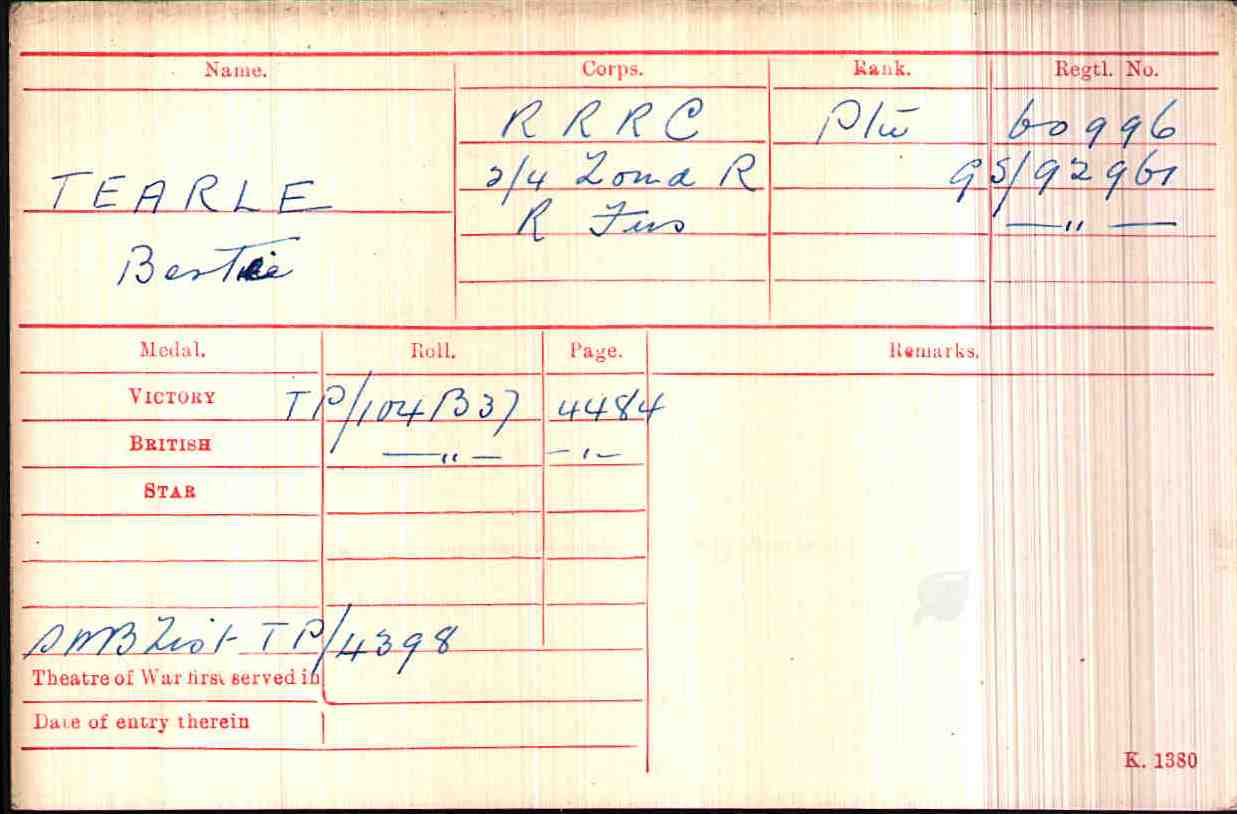 Name. Corps. Rank. Regtl. No.
R R R C Pte 60996
2/4 Lond R GS/92961
TEARLE R Fus —"—
Bertie
Medal. Roll. Page. Remarks.
VICTORY TP/104B37 4484
BRITISH —"— -"-
STAR
SWB List TP/4398
Theatre of War first served in
Date of entry therein
K. 1380